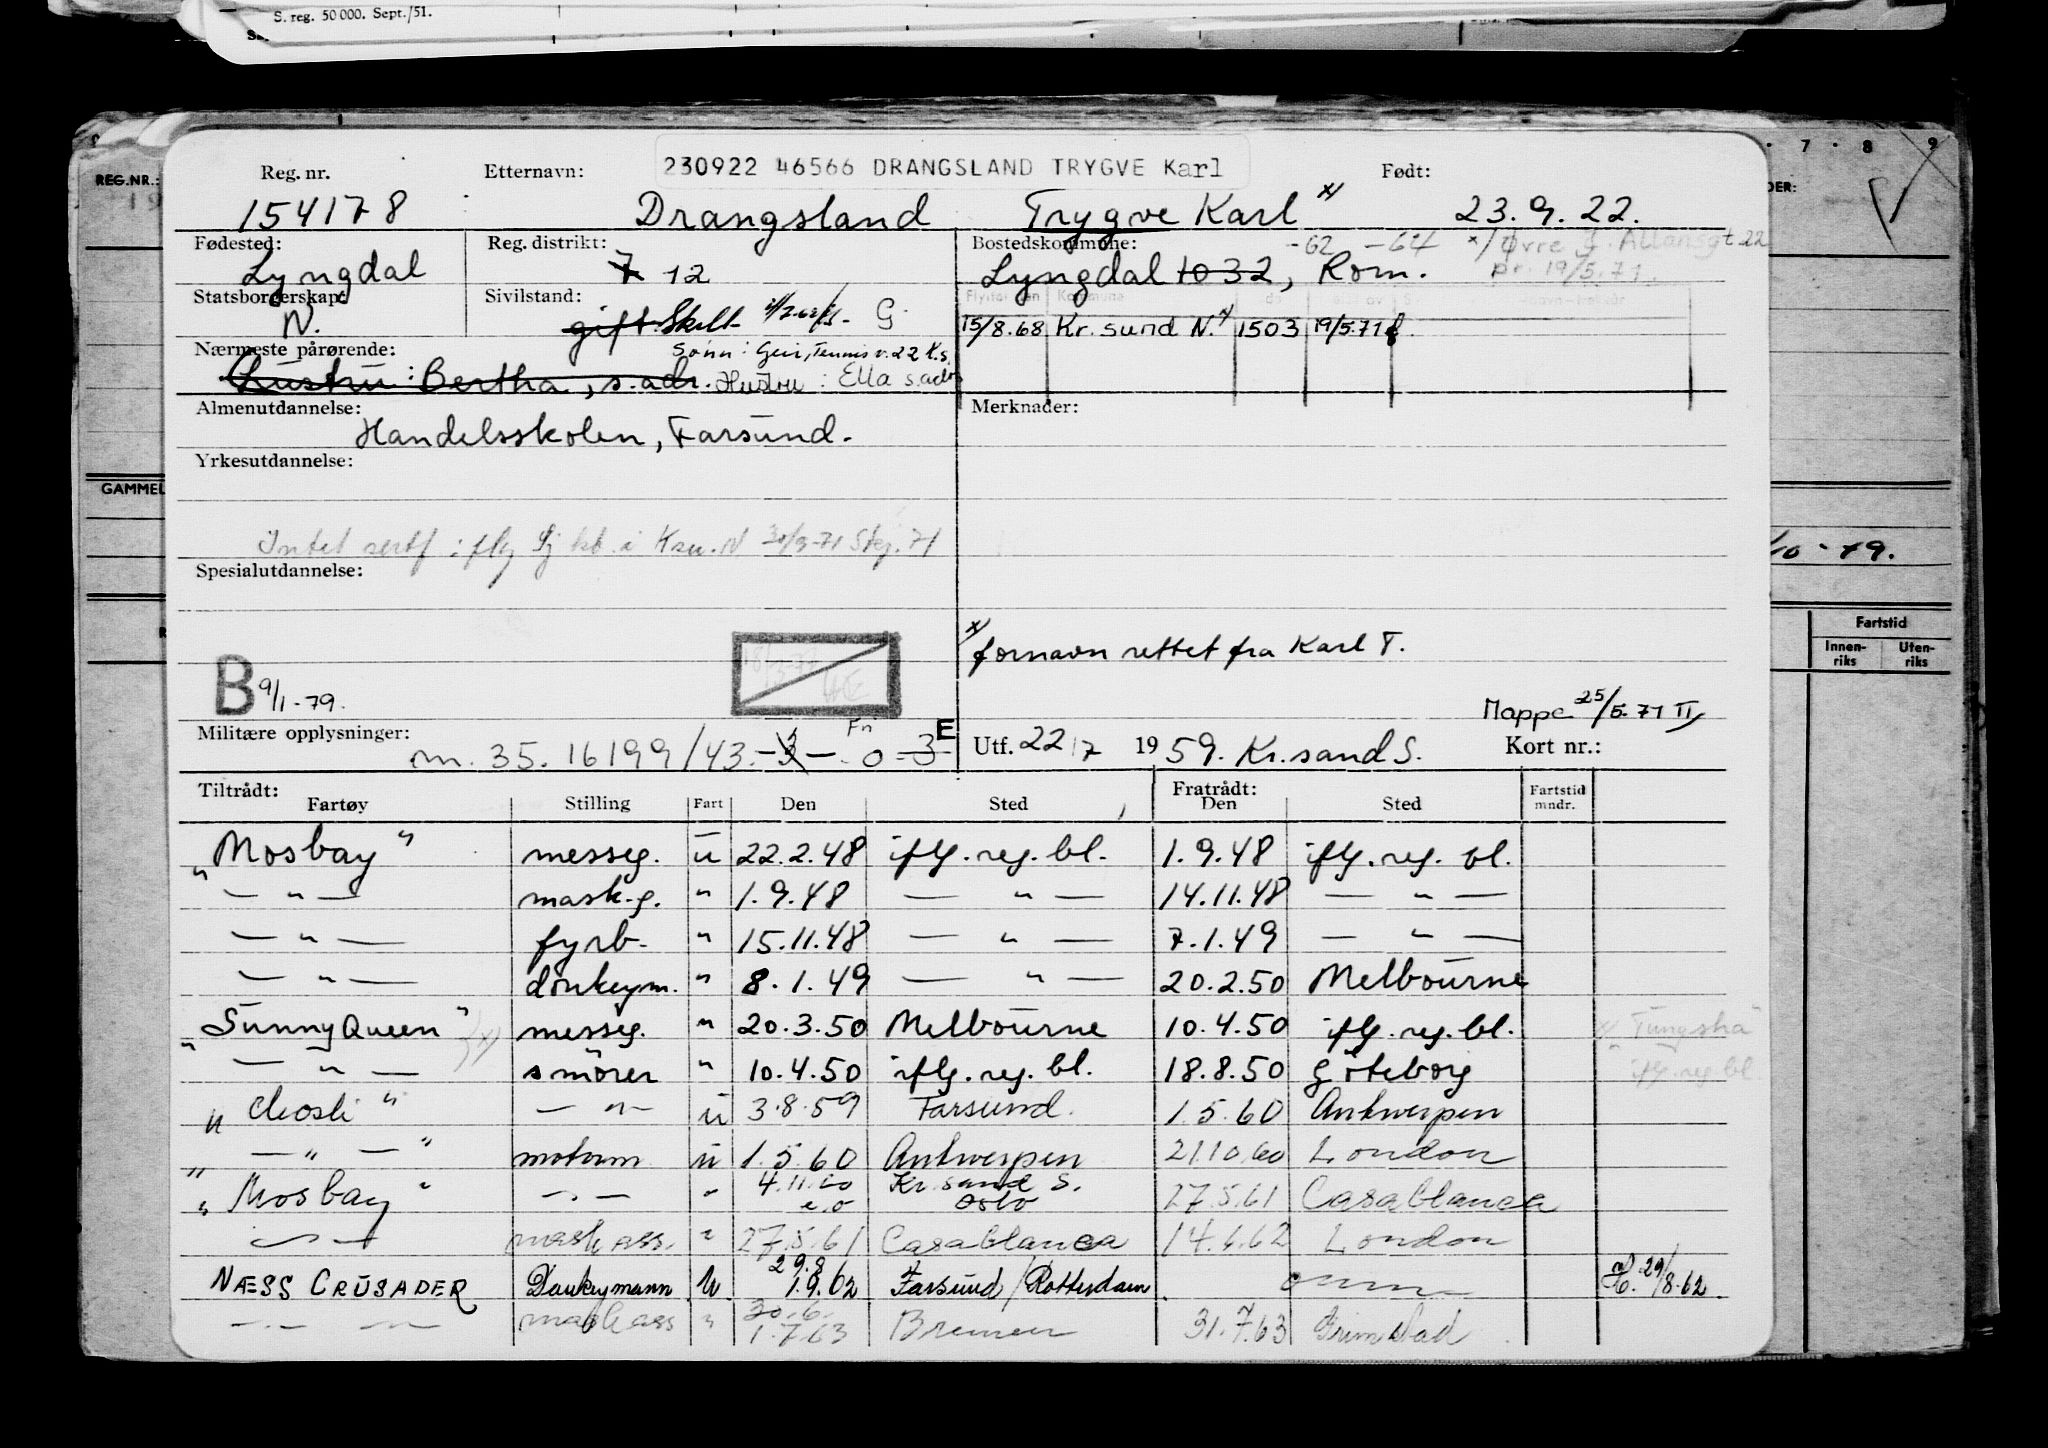 S. reg. 50 000. Sept./51.
REG.NR.:
7 · 8 9
Reg. nr. Etternavn: 230922 46566 DRANGSLAND TRYGVE Karl Født:
154178 Drangsland Trygve Karl x/ 23.9.22.
Fødested: Reg. distrikt: Bostedskommune: -62 -64 x/ Øvre Allansgt 22
Lyngdal 7 12 Lyngdal 1032, Rom. pr. 19/5.71.
Statsborgerskap: Sivilstand:
N. gift Skilt G
15/8.68 Kr.sund N. x/ 1503 19/5.71
Nærmeste pårørende: Sønn: Geir, Tennisv. 22 K.s.
Hustru: Bertha, s.adr. Hustru: Ella s.adr.
Almenutdannelse: Merknader:
Handelsskolen, Farsund.
Yrkesutdannelse:
GAMMEL
Intet sertf i flg Sj kt. i Krsu. N
Spesialutdannelse:
/10-79.
Fartstid
Innen-riks Uten-riks
x/ fornavn rettet fra Karl T.
B 9/1-79.
Mappe 25/5.71
Militære opplysninger: Fri E
m. 35.16199/43.-3-.0-3 Utf. 22/7 1959. Kr.sand S. Kort nr.:
Tiltrådt: Fratrådt:
Fartøy Stilling Fart Den Sted Den Sted Fartstid mndr.
"Mosbay" messeg. u 22.2.48 iflg.reg.bl. 1.9.48 iflg.reg.bl.
— " — mask.g. " 1.9.48 — " — 14.11.48 — " —
— " — fyrb. " 15.11.48 — " — 7.1.49 — " —
— " — donkeym. " 8.1.49 — " — 20.2.50 Melbourne
"Sunny Queen" x) messeg. " 20.3.50 Melbourne 10.4.50 iflg.reg.bl. x/ "Tungsha"
— " — smörer " 10.4.50 iflg.reg.bl. 18.8.50 Göteborg iflg.reg.bl.
"Mosli" — " — u 3.8.59 Farsund. 1.5.60 Antwerpen
" — " — " motorm u 1.5.60 Antwerpen 21.10.60 London
"Mosbay" — " — " 4.11.60 e.o Kr.sand S. Oslo 27.5.61 Casablanca
— " — mask ass. " 27.5.61 Casablanca 14.6.62 London
NÆSS CRUSADER Donkeymann u. 29.8 1.9.62 Farsund/Rotterdam. omm H. 29/8.62.
— " — mask ass " 30.6. 1.7.63 Bremen 31.7.63 Grimstad